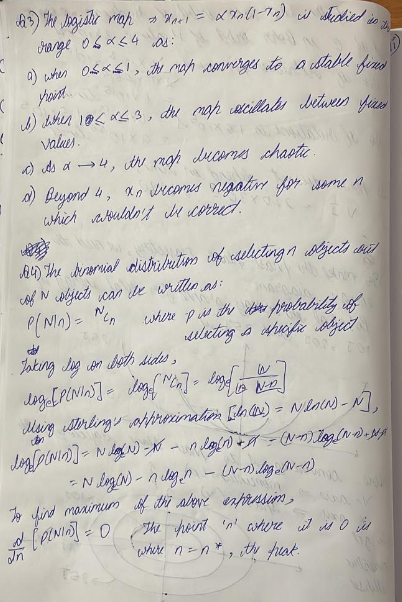 Q3) The logistic map ⇒ xn+1 = αxn(1-xn) is studied in the
range 0 ≤ α ≤ 4 as:
a) when 0≤α≤1, the map converges to a stable fixed
point.
b) When 1≤α≤3, the map oscillates between fixed
values.
c) As α → 4, the map becomes chaotic.
d) Beyond 4, xn becomes negative for some n
which wouldn't be correct.
Q4) The binomial distribution of selecting n objects out
of N objects can be written as:
P(N|n) = NCn where P is the probability of
selecting a specific object
Taking log on both sides,
loge[P(N|n)] = loge[NCn] = loge[
Using sterling's approximation [ln(N) = N ln(N) - N],
loge[P(N|n)] = N log(N) - N - n log(n) + n - (N-n) loge(N-n) +
= N log(N) - n loge n - (N-n) loge(N-n)
To find maximum of the above expression,
d/dn [P(N|n)] = 0 The point 'n' where it is 0 is
where n = n*, the peak.